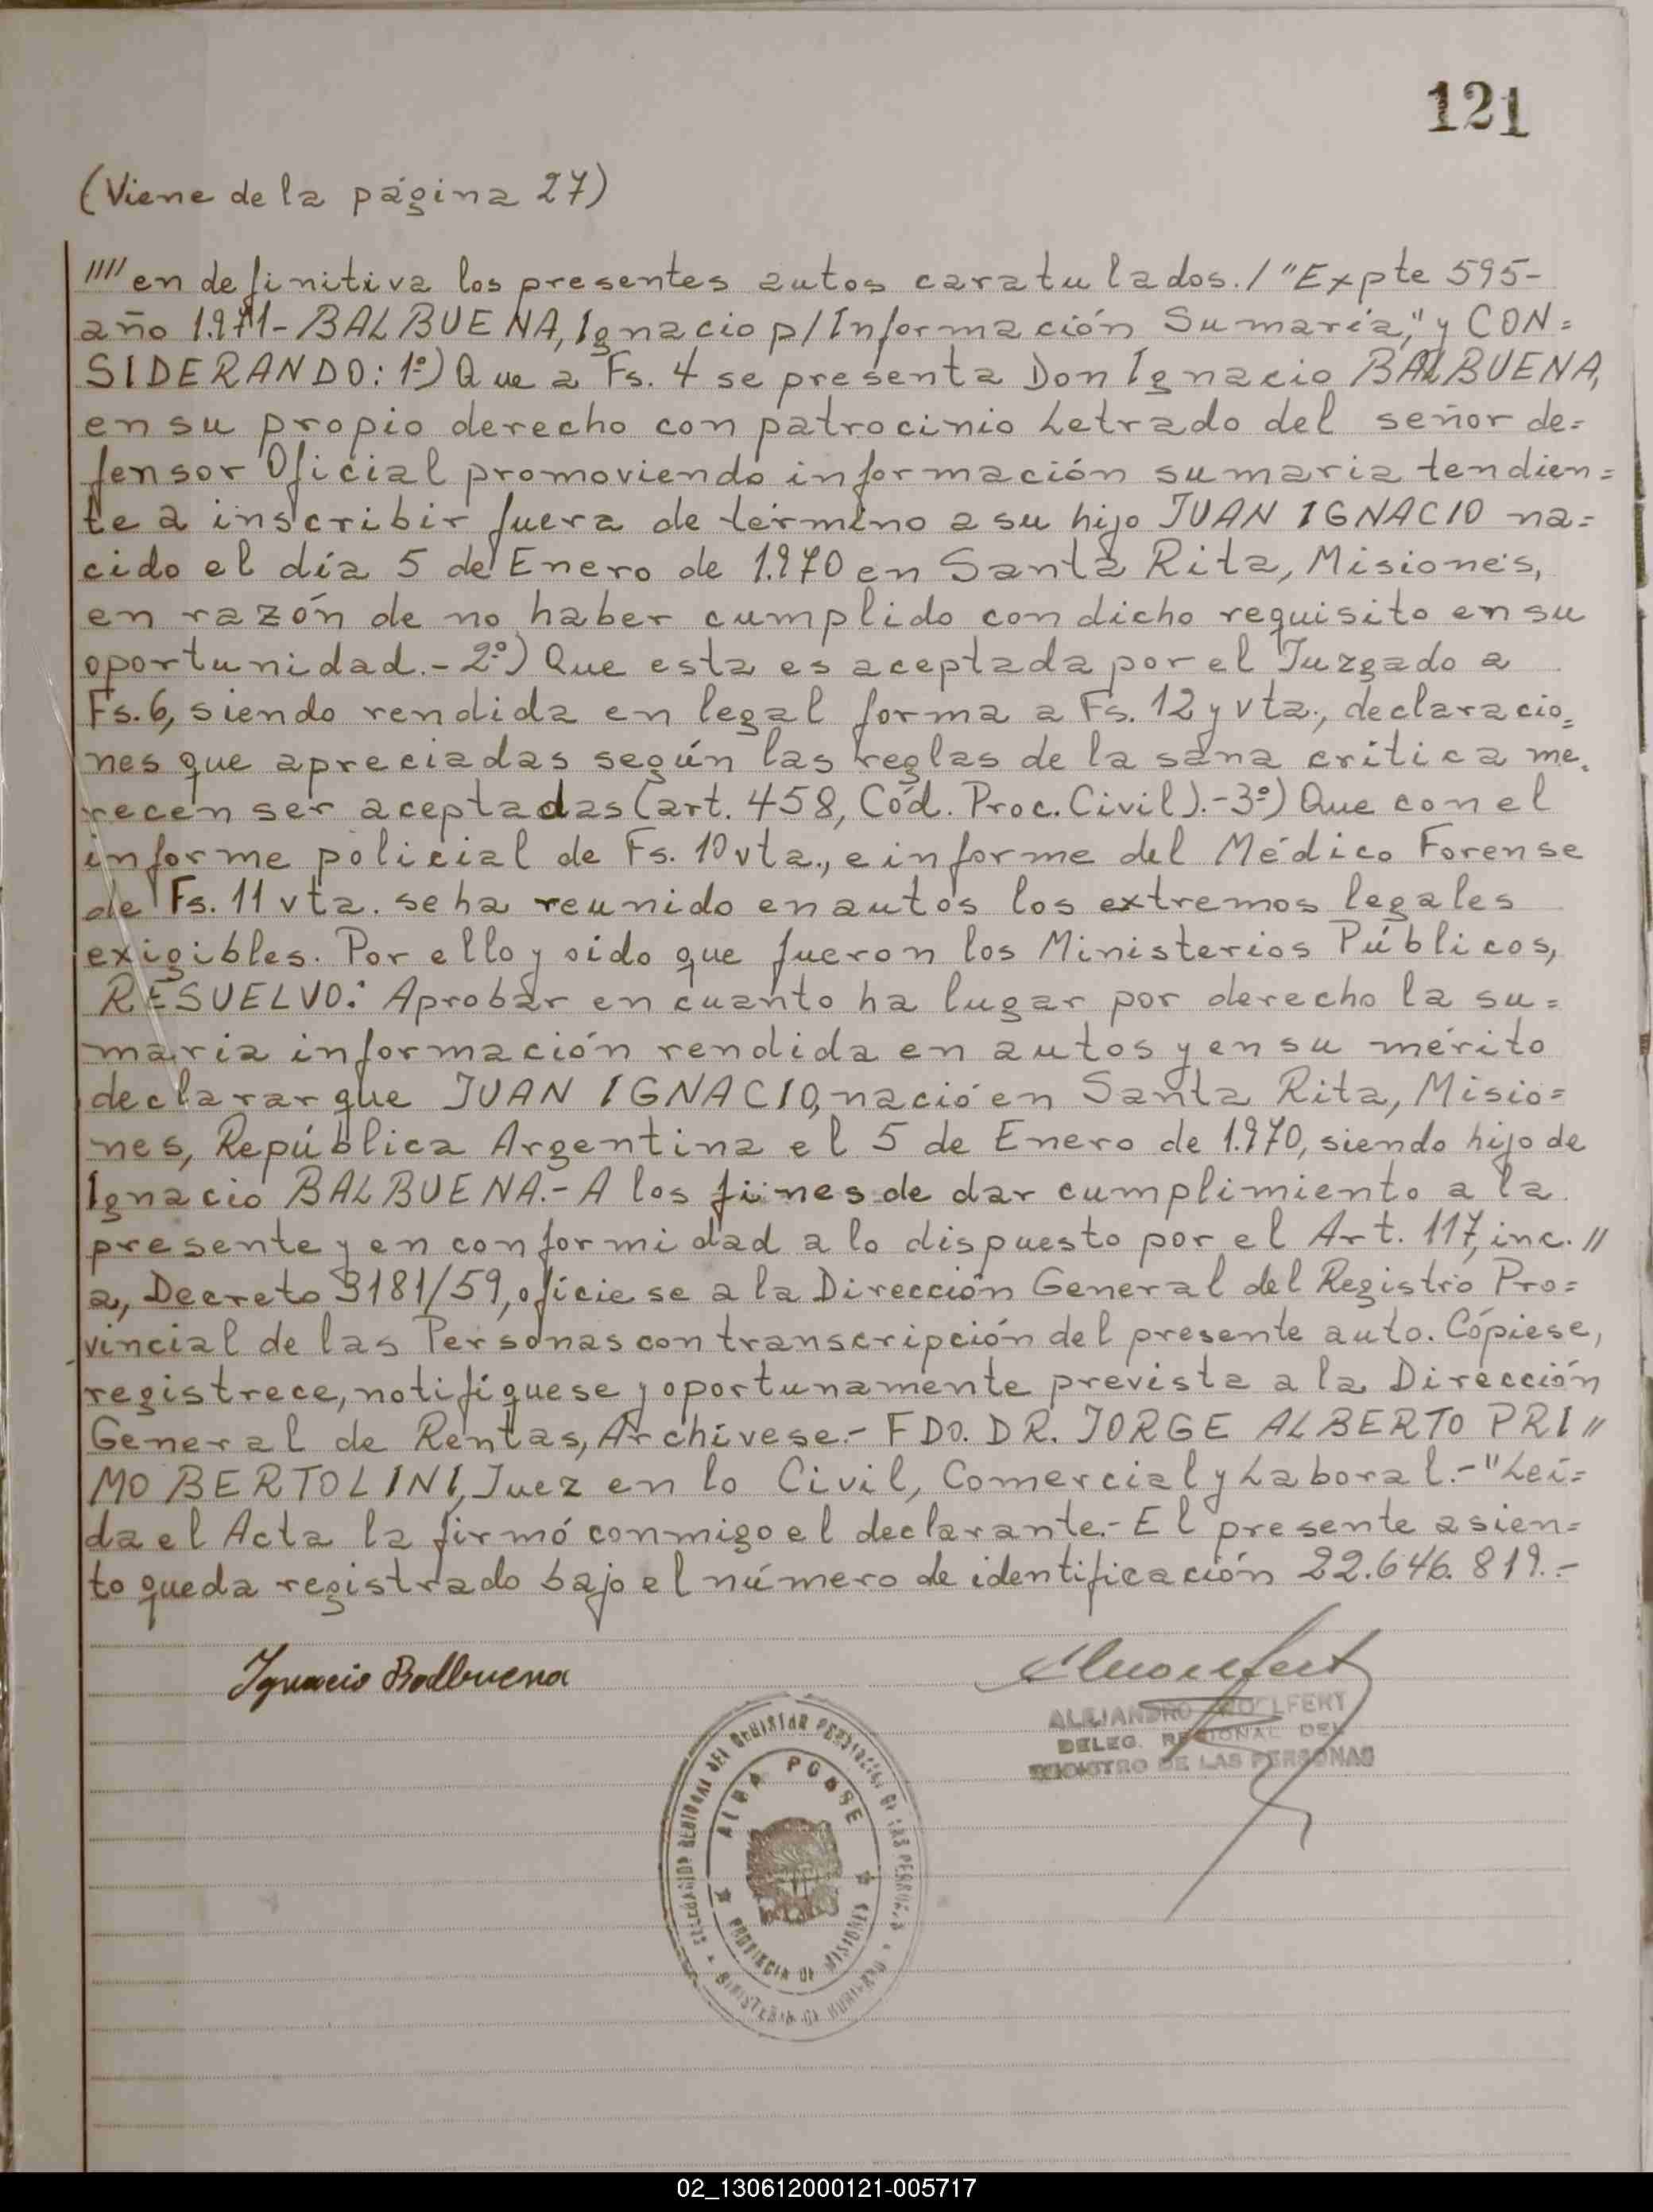 121
(Viene de la página 27)
"" en definitiva los presentes autos caratulados. / "Expte 595-
año 1.971- BALBUENA, Ignacio p/Información Sumaria," y CON=
SIDERANDO: 1º) Que a Fs. 4 se presenta Don Ignacio BALBUENA,
en su propio derecho con patrocinio Letrado del señor de=
fensor Oficial promoviendo información sumaria tendien=
te a inscribir fuera de término a su hijo JUAN IGNACIO na=
cido el día 5 de Enero de 1.970 en Santa Rita, Misiones,
en razón de no haber cumplido con dicho requisito en su
oportunidad.- 2º) Que esta es aceptada por el Juzgado a
Fs. 6, siendo rendida en legal forma a Fs. 12 y vta., declaracio=
nes que apreciadas según las reglas de la sana crítica me=
recen ser aceptadas (art. 458, Cód. Proc. Civil).- 3º) Que con el
informe policial de Fs. 10 vta., e informe del Médico Forense
de Fs. 11 vta. se ha reunido en autos los extremos legales
exigibles. Por ello y oído que fueron los Ministerios Públicos,
RESUELVO: Aprobar en cuanto ha lugar por derecho la su=
maria información rendida en autos y en su mérito
declarar que JUAN IGNACIO, nació en Santa Rita, Misio=
nes, República Argentina el 5 de Enero de 1.970, siendo hijo de
Ignacio BALBUENA.- A los fines de dar cumplimiento a la
presente y en conformidad a lo dispuesto por el Art. 117, inc. //
a, Decreto 3181/59, ofíciese a la Dirección General del Registro Pro=
vincial de las Personas con transcripción del presente auto. Cópiese,
regístrece, notifíquese y oportunamente prevista a la Dirección
General de Rentas, Archívese.- FDO. DR. JORGE ALBERTO PRI //
MO BERTOLINI, Juez en lo Civil, Comercial y Laboral.-" Leí=
da el Acta la firmó conmigo el declarante.- El presente asien=
to queda registrado bajo el número de identificación 22.646.819.-
Ignacio Balbuena
ALEJANDRO WOLFERT
DELEG. REGIONAL DEL
REGISTRO DE LAS PERSONAS
DELEGACION REGIONAL DEL REGISTRO PROVINCIAL DE LAS PERSONAS
ALBA POSSE
PROVINCIA DE MISIONES
MINISTERIO DE GOBIERNO
02_130612000121-005717